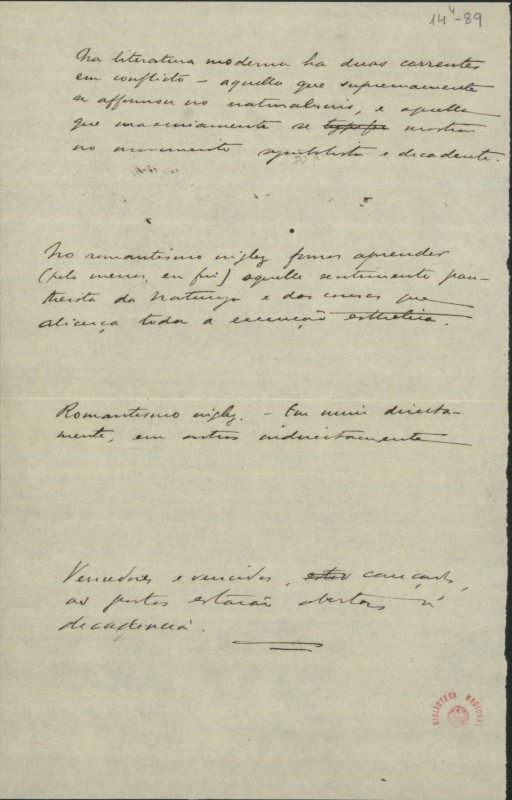 14⁴-89
Na literatura moderna ha duas correntes
em conflicto — aquella que supremamente
se affirmou no naturalismo, e aquella
que maximamente se mostra
no movimento symbolista e decadente.
No romantismo inglez fomos aprender
(pelo menos, eu fui) aquelle sentimento pan-
theista da Natureza e das cousas que
alicerça toda a execução esthetica.
Romantismo inglez. — Em mim directa-
mente, em outros indirectamente
Vencedores e vencidos, cançados,
as portas estarão abertas á
decadencia.
BIBLIOTECA NACIONAL